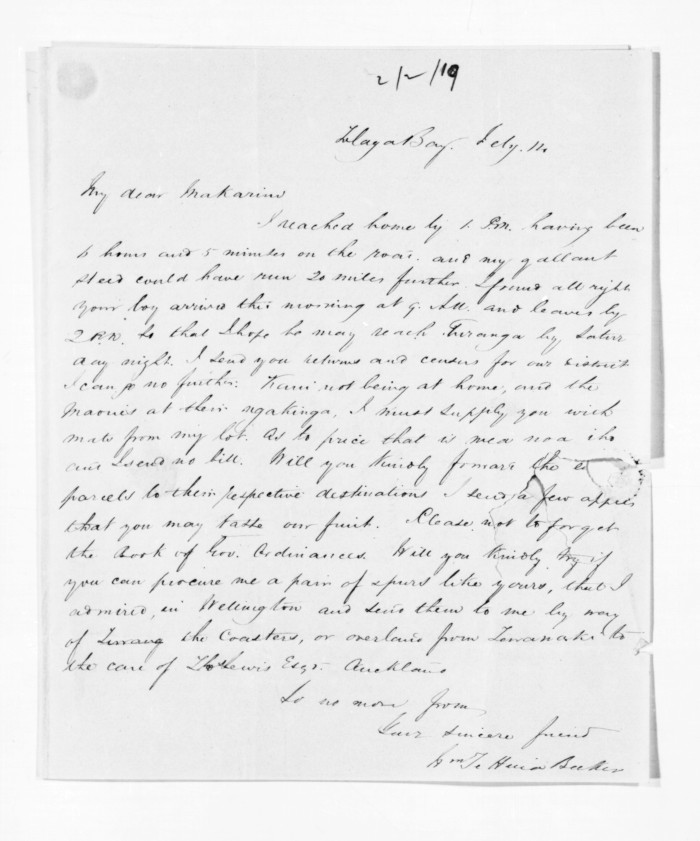 2/2/19
Tolaga Bay. July. 14
My dear Makarini
I reached home by 1. P.M. having been
6 hours and 5 minutes on the road. and my gallant
steed could have run 20 miles further. I found all right
your boy arrived this morning at 9. AM. and leaves by
2 P.M. so that I hope he may reach Turanga by Satur
day night. I send you returns and census for our District
I can go no further. not being at home, and the
Maories at their ngakinga, I must supply you with
mats from my lot. As to price that is mea noa iho
and I send no bill. Will you kindly forward the
parcels to their respective destinations I send a few apples
that you may taste our fruit. Please, not to forget
the Book of Gov. Ordinances. Will you kindly try if
you can procure me a pair of spurs like yours, that I
admired, in Wellington and send them to me by way
of the Coasters, or overland from Tarranaki to
the care of Lewis Esqr. Auckland
So no more from
Your sincere friend
Wm Te Huia Baker